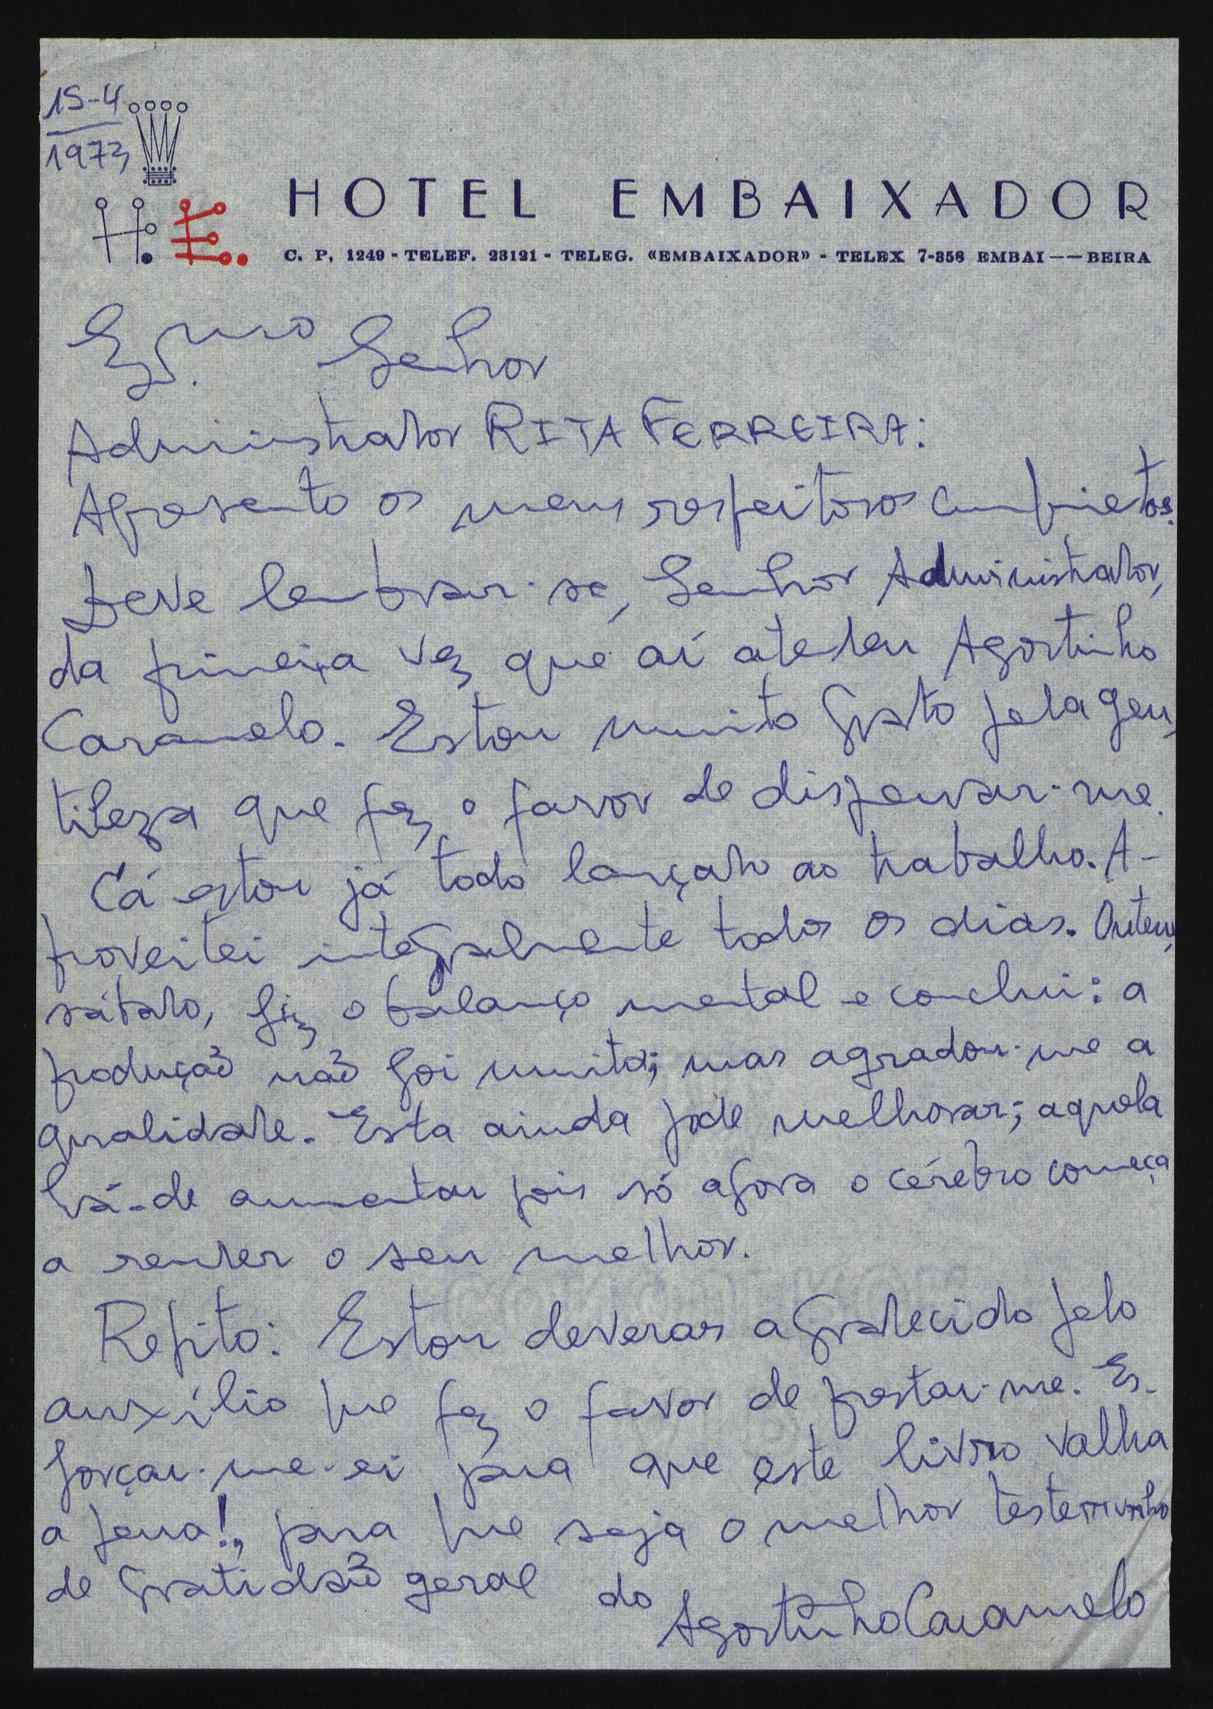 15-4
1973
H. E.
HOTEL EMBAIXADOR
C. P. 1249 - TELEF. 23121 - TELEG. «EMBAIXADOR» - TELEX 7-358 EMBAI — BEIRA
Exmo. Senhor
Administrador RITA FERREIRA:
Apresento os meus respeitosos cumprimetos.
Deve lembrar-se, Senhor Administrador,
da primeira vez que aí atendeu Agostinho
Caramelo. Estou muito grato pela gen-
tileza que fez o favor de dispensar-me.
Cá estou já todo lançado ao trabalho. A-
proveitei integralmente todos os dias. Ontem,
sábado, fiz o balanço mental e conclui: a
produção não foi muita; mas agradou-me a
qualidade. Esta ainda pode melhorar; aquela
há-de aumentar pois só agora o cérebro começa
a render o seu melhor.
Repito: Estou deveras agradecido pelo
auxílio que fez o favor de prestar-me. Es-
forçar-me-ei para que este livro valha
a pena!, para que seja o melhor testemunho
de gratidão geral do
Agostinho Caramelo